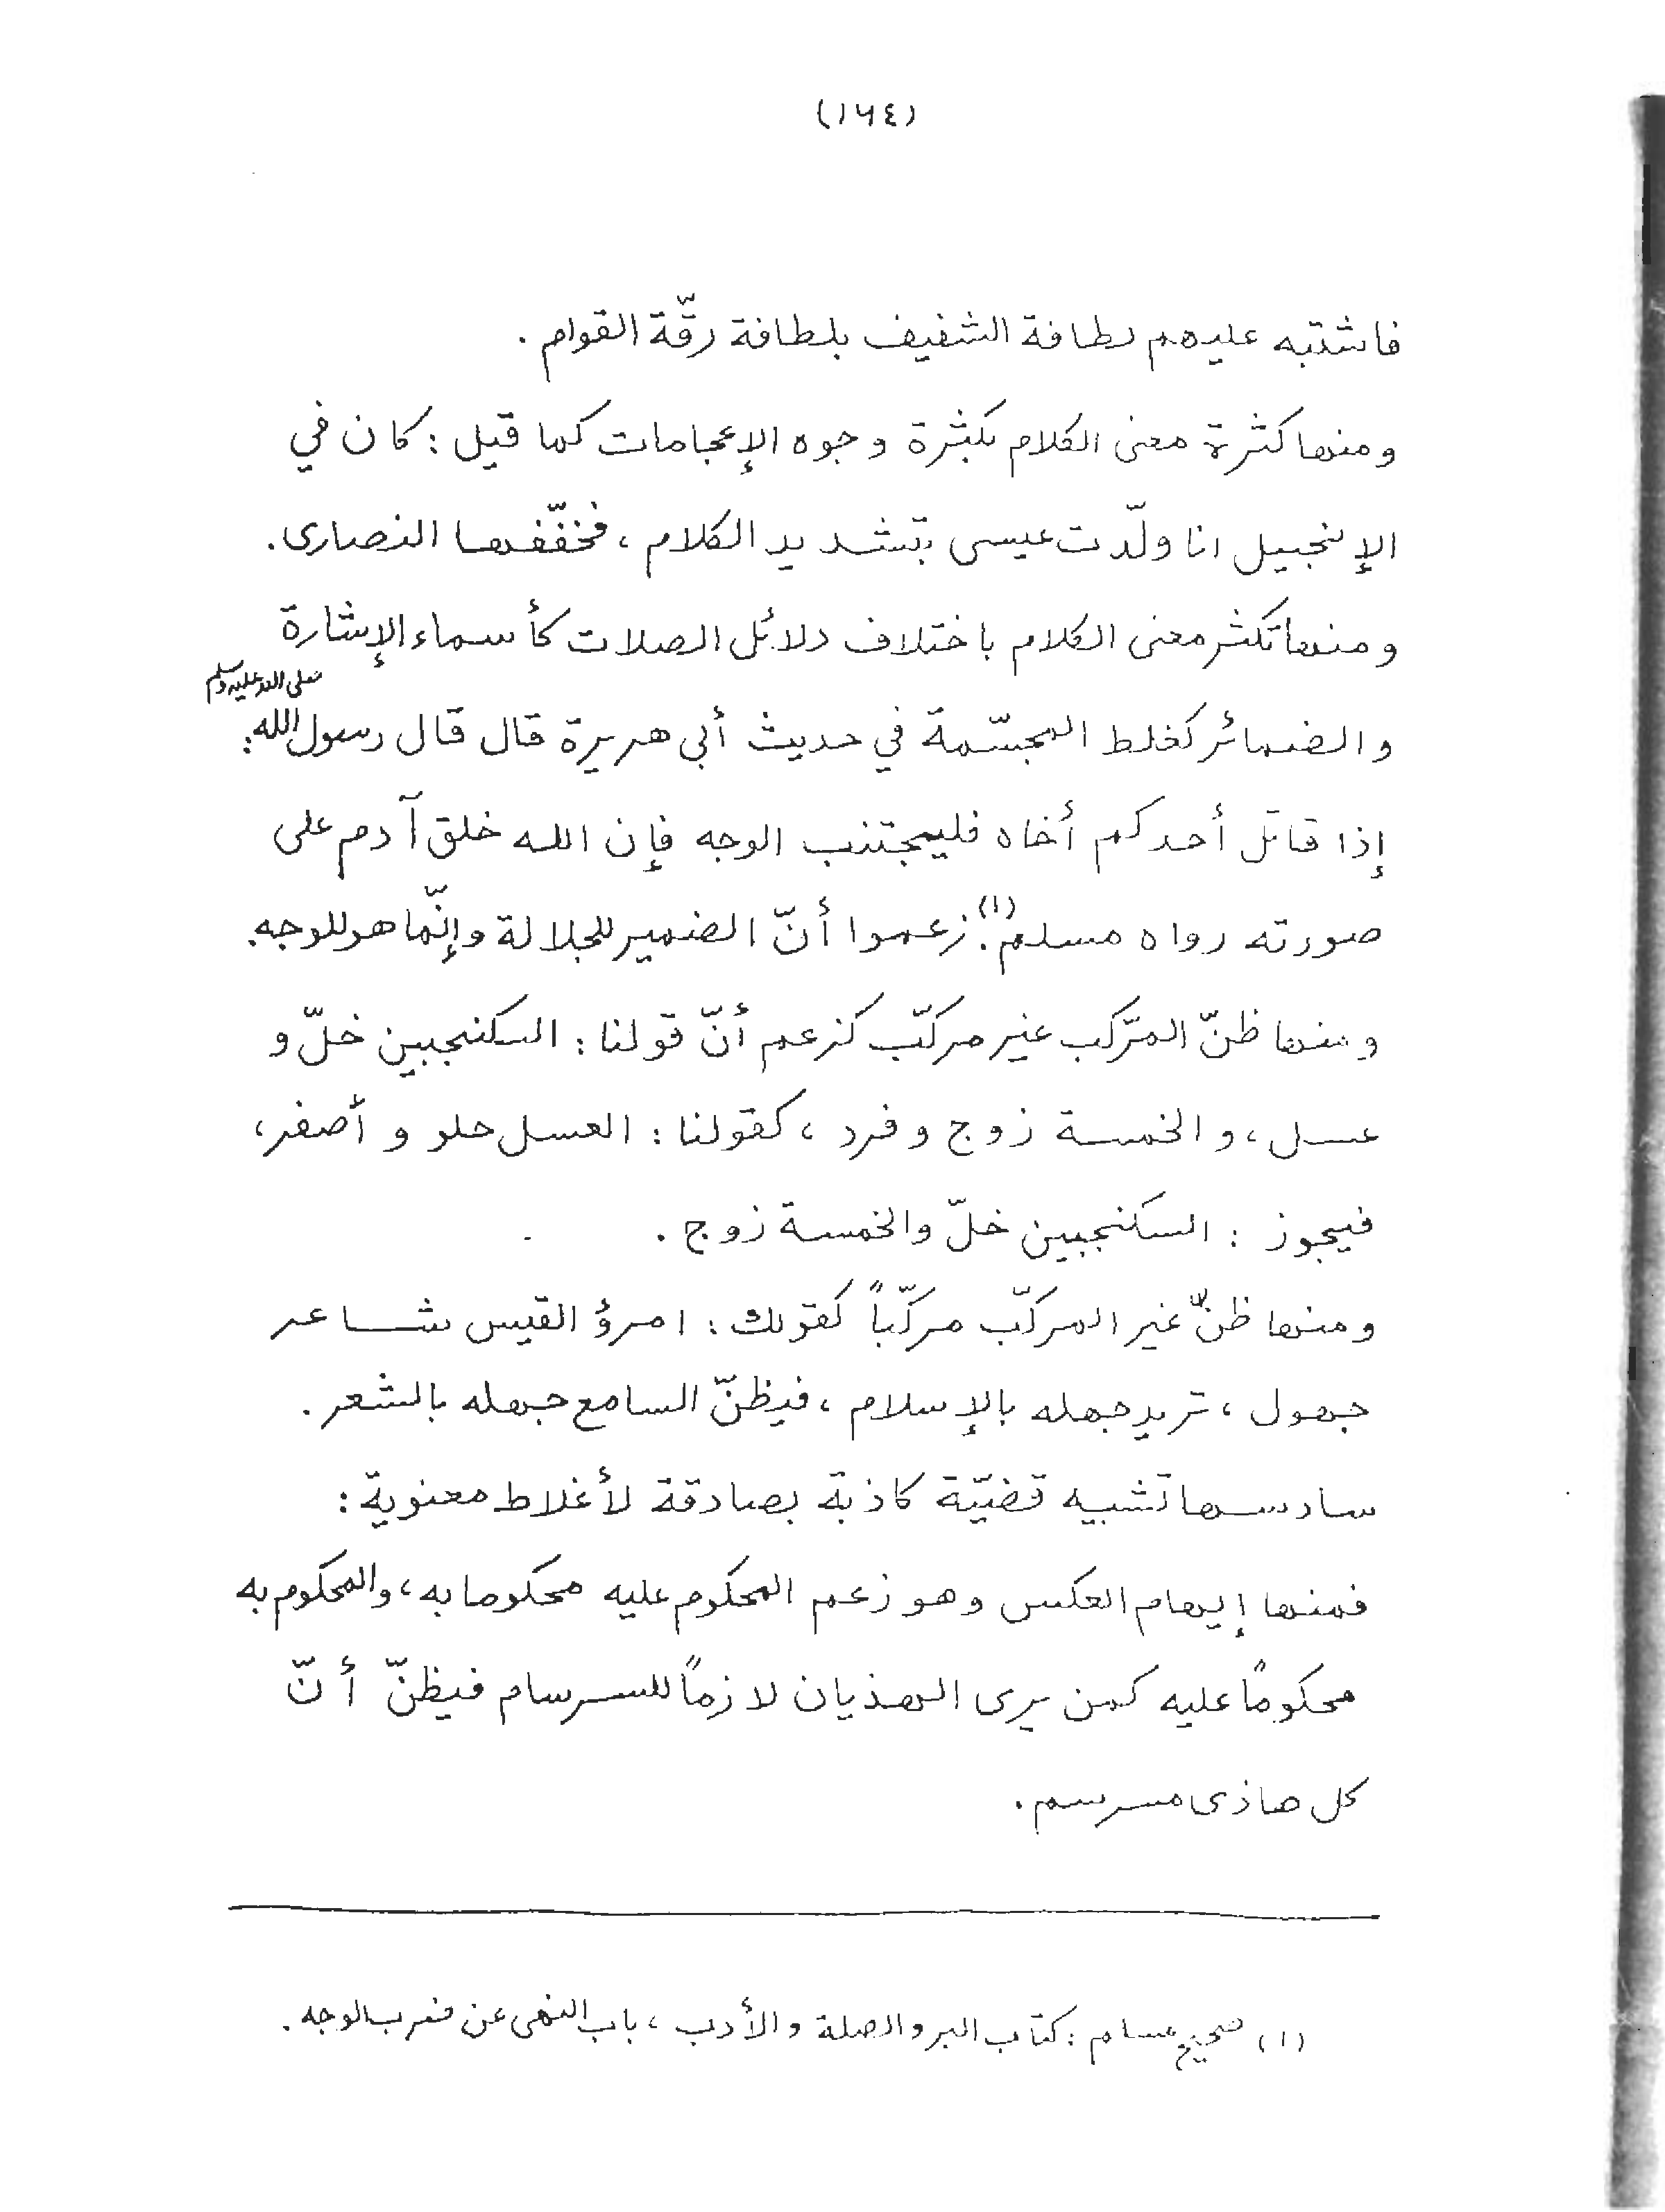 (١٦٤)
فاشتبه عليهم لطافة الشفيف بلطافة رقّة القوام .
ومنها كثرة معنى الكلام بكثرة وجوه الإعجامات كما قيل : كان في
الإنجيل انا ولّدت عيسى بتشديد الكلام ، فخفّفها النصارى .
ومنها تكثر معنى الكلام باختلاف دلائل الصلات كأسماء الإشارة
والضمائر كغلط المجسّمة في حديث أبي هريرة قال قال رسول الله صلى الله عليه وسلم :
إذا قاتل أحدكم أخاه فليجتنب الوجه فإن الله خلق آدم على
صورته رواه مسلم (١) . زعموا أنّ الضمير للجلالة وإنّما هو للوجه .
ومنها ظنّ المرّكب غير مركّب كزعم أنّ قولنا : السكنجبين خلّ و
عسل ، والخمسة زوج وفرد ، كقولنا : العسل حلو وأصفر ،
فيجوز : السكنجبين خلّ والخمسة زوج .
ومنها ظنّ غير المركّب مركّباً كقولك : امرؤ القيس شاعر
جهول ، تريد جهله بالإسلام ، فيظنّ السامع جهله بالشعر .
سادسها تشبيه قضيّة كاذبة بصادقة لأغلاط معنوية :
فمنها إيهام العكس وهو زعم المحكوم عليه محكوما به ، والمحكوم به
محكومًا عليه كمن يرى الهذيان لازمًا للسرسام فيظنّ أنّ
كل هاذى مسرسم .
(١) صحيح مسلم : كتاب البر والصلة والأدب ، باب النهى عن ضرب الوجه .